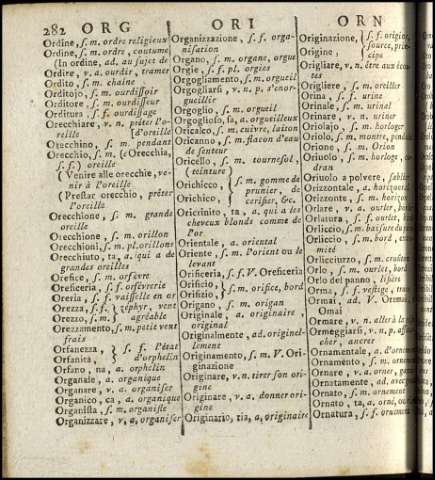 282 ORG ORI ORN
Ordine, ſ. m. ordre religieux
Ordine, ſ. m. ordre, coutume
(In ordine, ad. au ſujet de
Ordire, v. a. ourdir, tramer
Ordito, ſ. m. chaine
Orditojo, ſ. m. ourdiſſoir
Orditore, ſ. m. ourdiſſeur
Orditura, ſ. f. ourdiſſage
Orecchiare, v. n. prêter l'o-
reille [d'oreille
Orecchino, ſ. m. pendant
Orecchio, ſ. m. (e Orecchia,
ſ. f.) oreille
(Venire alle orecchie, ve-
nir à l'oreille
(Preſtar orecchio, prêter
l'oreille
Orecchione, ſ. m. grande
oreille
Orecchione, ſ. m. orillon
Orecchioni, ſ. m. pl. orillons
Orecchiuto, ta, a. qui a de
grandes oreilles
Orefice, ſ. m. orfévre
Oreficeria, ſ. f. orfévrerie
Oreria, ſ. f. vaiſſelle en or
Orezza, ſ. f. } zéphyr, vent
Orezzo, ſ. m. } agréable
Orezzamento, ſ. m. petit vent
frais
Orfanezza, } ſ. f. l'état
Orfanita, } d'orphelin
Orfano, na, a. orphelin
Organale, a. organique
Organare, v. a. organiſer
Organico, ca, a. organique
Organiſta, ſ. m. organiſte
Organizzare, v. a. organiſer
Organizzazione, ſ. f. orga-
niſation
Organo, ſ. m. organe, orgue
Orgie, ſ. f. pl. orgies
Orgogliamento, ſ. m. orgueil
Orgogliarſi, v. n. p. s'enor-
gueillir
Orgoglio, ſ. m. orgueil
Orgoglioſo, ſa, a. orgueilleux
Oricalco, ſ. m. cuivre, laiton
Oricanno, ſ. m. flacon d'eau
de ſenteur
Oricello, ſ. m. tourneſol,
(teinture)
Orichicco, } ſ. m. gomme de
prunier, de
Orichico, } ceriſier, &c.
Oricrinito, ta, a. qui a les
cheveux blonds comme de
l'or
Orientale, a. oriental
Oriente, ſ. m. l'orient ou le
levant
Orificeria, ſ. f. V. Oreficeria
Orificio, } ſ. m. orifice, bord
Orifizio, }
Origano, ſ. m. origan
Originale, a. originaire,
original
Originalmente, ad. originel-
lement
Originamento, ſ. m. V. Ori-
ginazione
Originare, v. n. tirer ſon ori-
gine
Originare, v. a. donner ori-
gine
Originario, ria, a. originaire
Originazione, } ſ. f. origine,
ſource, prin-
Origine, } cipe
Origliare, v. n. être aux écou-
tes
Origliere, ſ. m. oreiller
Orina, ſ. f. urine
Orinale, ſ. m. urinal
Orinare, v. n. uriner
Oriolajo, ſ. m. horloger
Oriolo, ſ. m. montre,
Orione, ſ. m. Orion
Oriuolo, ſ. m. horloge, ca-
dran
Oriuolo a polvere,
Orizzontale, a.
Orizzonte, ſ. m.
Orlare, v. a. ourler,
Orlatura, ſ. f. ourlet,
Orliccio, ſ. m.
Orliccio, ſ. m. bord,

Orlicciuzzo, ſ. m.
Orlo, ſ. m. ourlet, bord
Orlo del panno,
Orma, ſ. f. veſtige,
Ormai, ad. V. Oramai,
Omai
Ormare, v. n. aller à la
Ormeggiarſi, v. n. p.
cher, ancrer
Ornamentale, a.
Ornamento, ſ. m.
Ornare, v. a. orner,
Ornatamente, ad.
Ornato, ſ. m. ornement
Ornato, ta, a. orné,
Ornatura, ſ. f. ornement